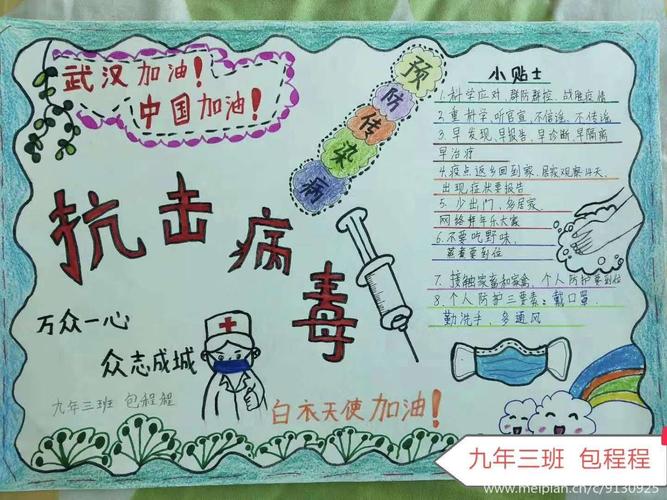 武汉加油！
中国加油！
预防传染病
抗击病毒
万众一心
众志成城
九年三班 包程程
白衣天使加油！
小贴士
1.科学应对、群防群控、战胜疫情
2.重科学、听官宣、不信谣、不传谣
3.早发现、早报告、早诊断、早隔离
早治疗
4.疫点返乡回到家、居家观察14天、
出现症状要报告
5. 少出门、多居家、
网络拜年乐大家
6.不要吃野味、
蒸煮要到位
7. 接触家畜和家禽、个人防护要到位
8.个人防护三要素：戴口罩、
勤洗手、多通风
九年三班 包程程
www.meipian.cn/c/9130925